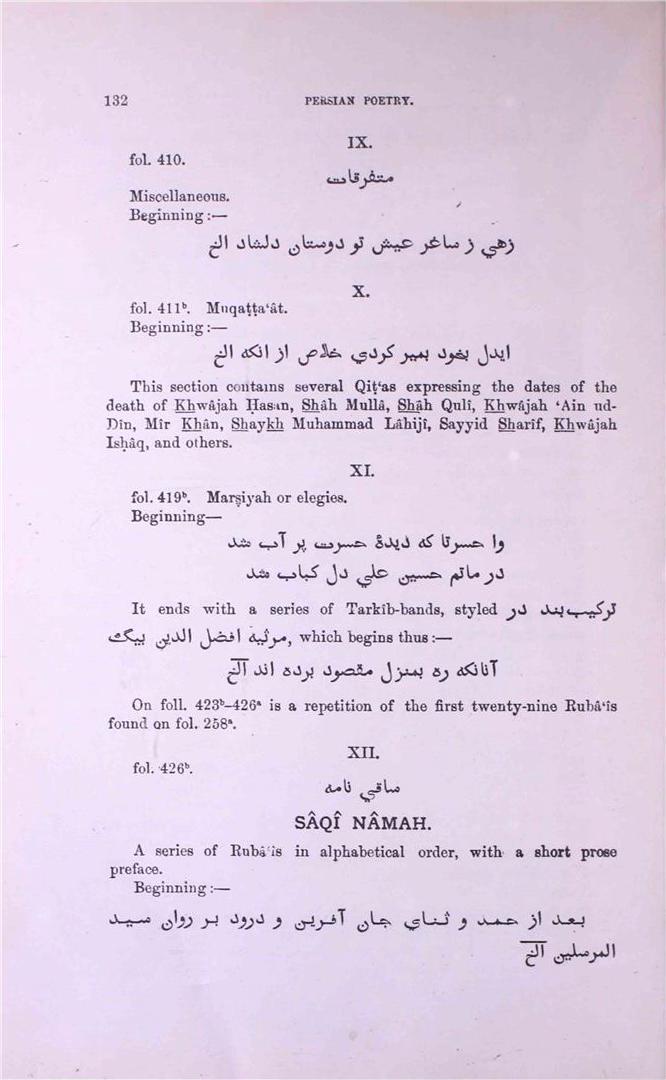 132
PERSIAN POETRY.
IX.
fol. 410.
متفرقات
Miscellaneous.
Beginning:—
زهي ز ساغر عيش تو دوستان دلشاد الخ
X.
fol. 411ᵇ. Muqaṭṭa‘ât.
Beginning:—
ايدل بخود بمير كردي خلاص از انكه الخ
This section contains several Qiṭ‘as expressing the dates of the
death of Khwâjah Ḥasan, Shâh Mullâ, Shâh Qulî, Khwâjah ‘Ain ud-
Dîn, Mîr Khân, Shaykh Muhammad Lâhijî, Sayyid Sharîf, Khwâjah
Isḥâq, and others.
XI.
fol. 419ᵇ. Marṣiyah or elegies.
Beginning—
وا حسرتا كه ديدۀ حسرت پر آب شد
در ماتم حسين علي دل كباب شد
It ends with a series of Tarkîb-bands, styled تركيب‌بند در
مرثيۀ افضل الدين بيگ, which begins thus:—
آنانكه ره بمنزل مقصود برده اند الخ
On foll. 423ᵇ–426ᵃ is a repetition of the first twenty-nine Rubâ‘îs
found on fol. 258ᵃ.
XII.
fol. 426ᵇ.
ساقي نامه
SÂQÎ NÂMAH.
A series of Rubâ‘îs in alphabetical order, with a short prose
preface.
Beginning:—
بعد از حمد و ثناي جان آفرين و درود بر روان سيد
المرسلين الخ